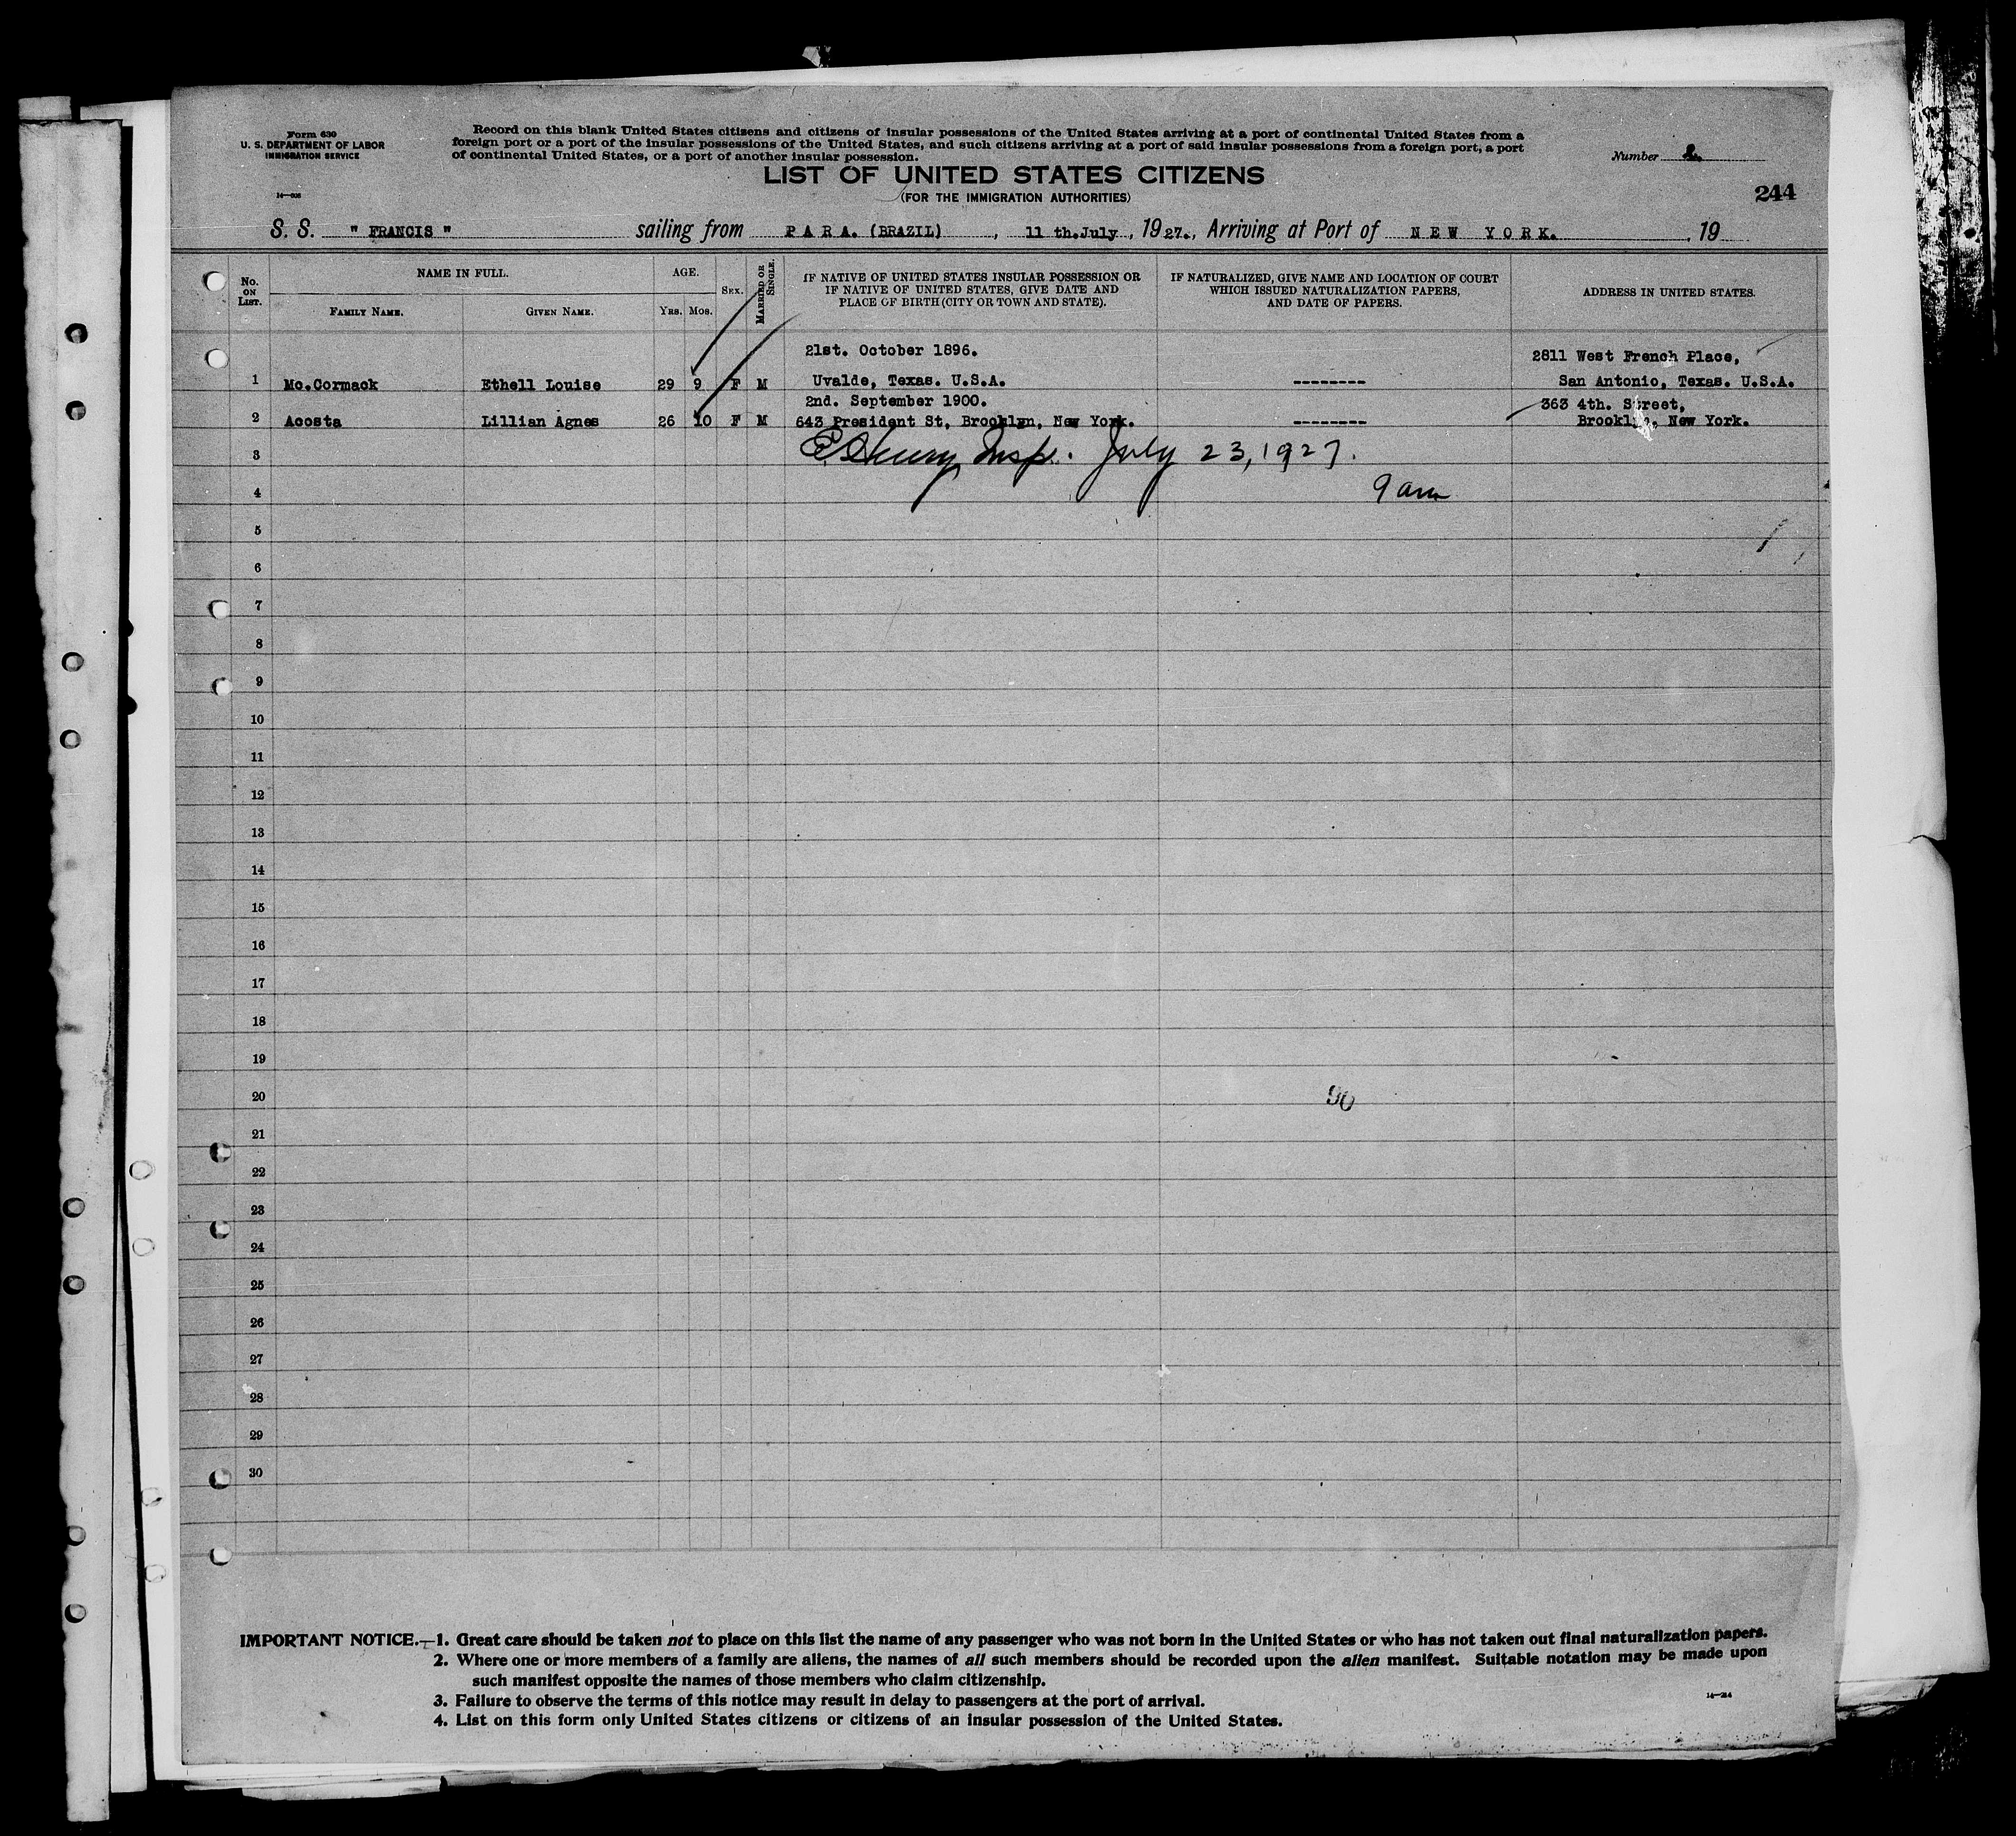 Form 630
U. S. DEPARTMENT OF LABOR
IMMIGRATION SERVICE
Record on this blank United States citizens and citizens of insular possessions of the United States arriving at a port of continental United States from a
foreign port or a port of the insular possessions of the United States, and such citizens arriving at a port of said insular possessions from a foreign port, a port
of continental United States, or a port of another insular possession.
Number 2.
LIST OF UNITED STATES CITIZENS
(FOR THE IMMIGRATION AUTHORITIES)
244
S. S. " FRANCIS " sailing from P A R A. (BRAZIL) , 11 th.July , 1927., Arriving at Port of N E W Y O R K. , 19
No. ON LIST.
NAME IN FULL.
FAMILY NAME.
GIVEN NAME.
AGE.
YRS. MOS.
SEX.
MARRIED OR SINGLE.
IF NATIVE OF UNITED STATES INSULAR POSSESSION OR
IF NATIVE OF UNITED STATES, GIVE DATE AND
PLACE OF BIRTH (CITY OR TOWN AND STATE).
IF NATURALIZED, GIVE NAME AND LOCATION OF COURT
WHICH ISSUED NATURALIZATION PAPERS,
AND DATE OF PAPERS.
ADDRESS IN UNITED STATES.
21st. October 1896. 2811 West French Place,
1 Mc.Cormack Ethell Louise 29 9 F M Uvalde, Texas. U.S.A. -------- San Antonio, Texas. U.S.A.
2nd. September 1900. 363 4th. Street,
2 Acosta Lillian Agnes 26 10 F M 643 President St, Brooklyn, New York. -------- Brooklyn, New York.
3 Henry Insp. July 23, 1927.
4 9 am
5
6
7
8
9
10
11
12
13
14
15
16
17
18
19
20 90
21
22
23
24
25
26
27
28
29
30
IMPORTANT NOTICE.—1. Great care should be taken not to place on this list the name of any passenger who was not born in the United States or who has not taken out final naturalization papers.
2. Where one or more members of a family are aliens, the names of all such members should be recorded upon the alien manifest. Suitable notation may be made upon
such manifest opposite the names of those members who claim citizenship.
3. Failure to observe the terms of this notice may result in delay to passengers at the port of arrival.
4. List on this form only United States citizens or citizens of an insular possession of the United States.